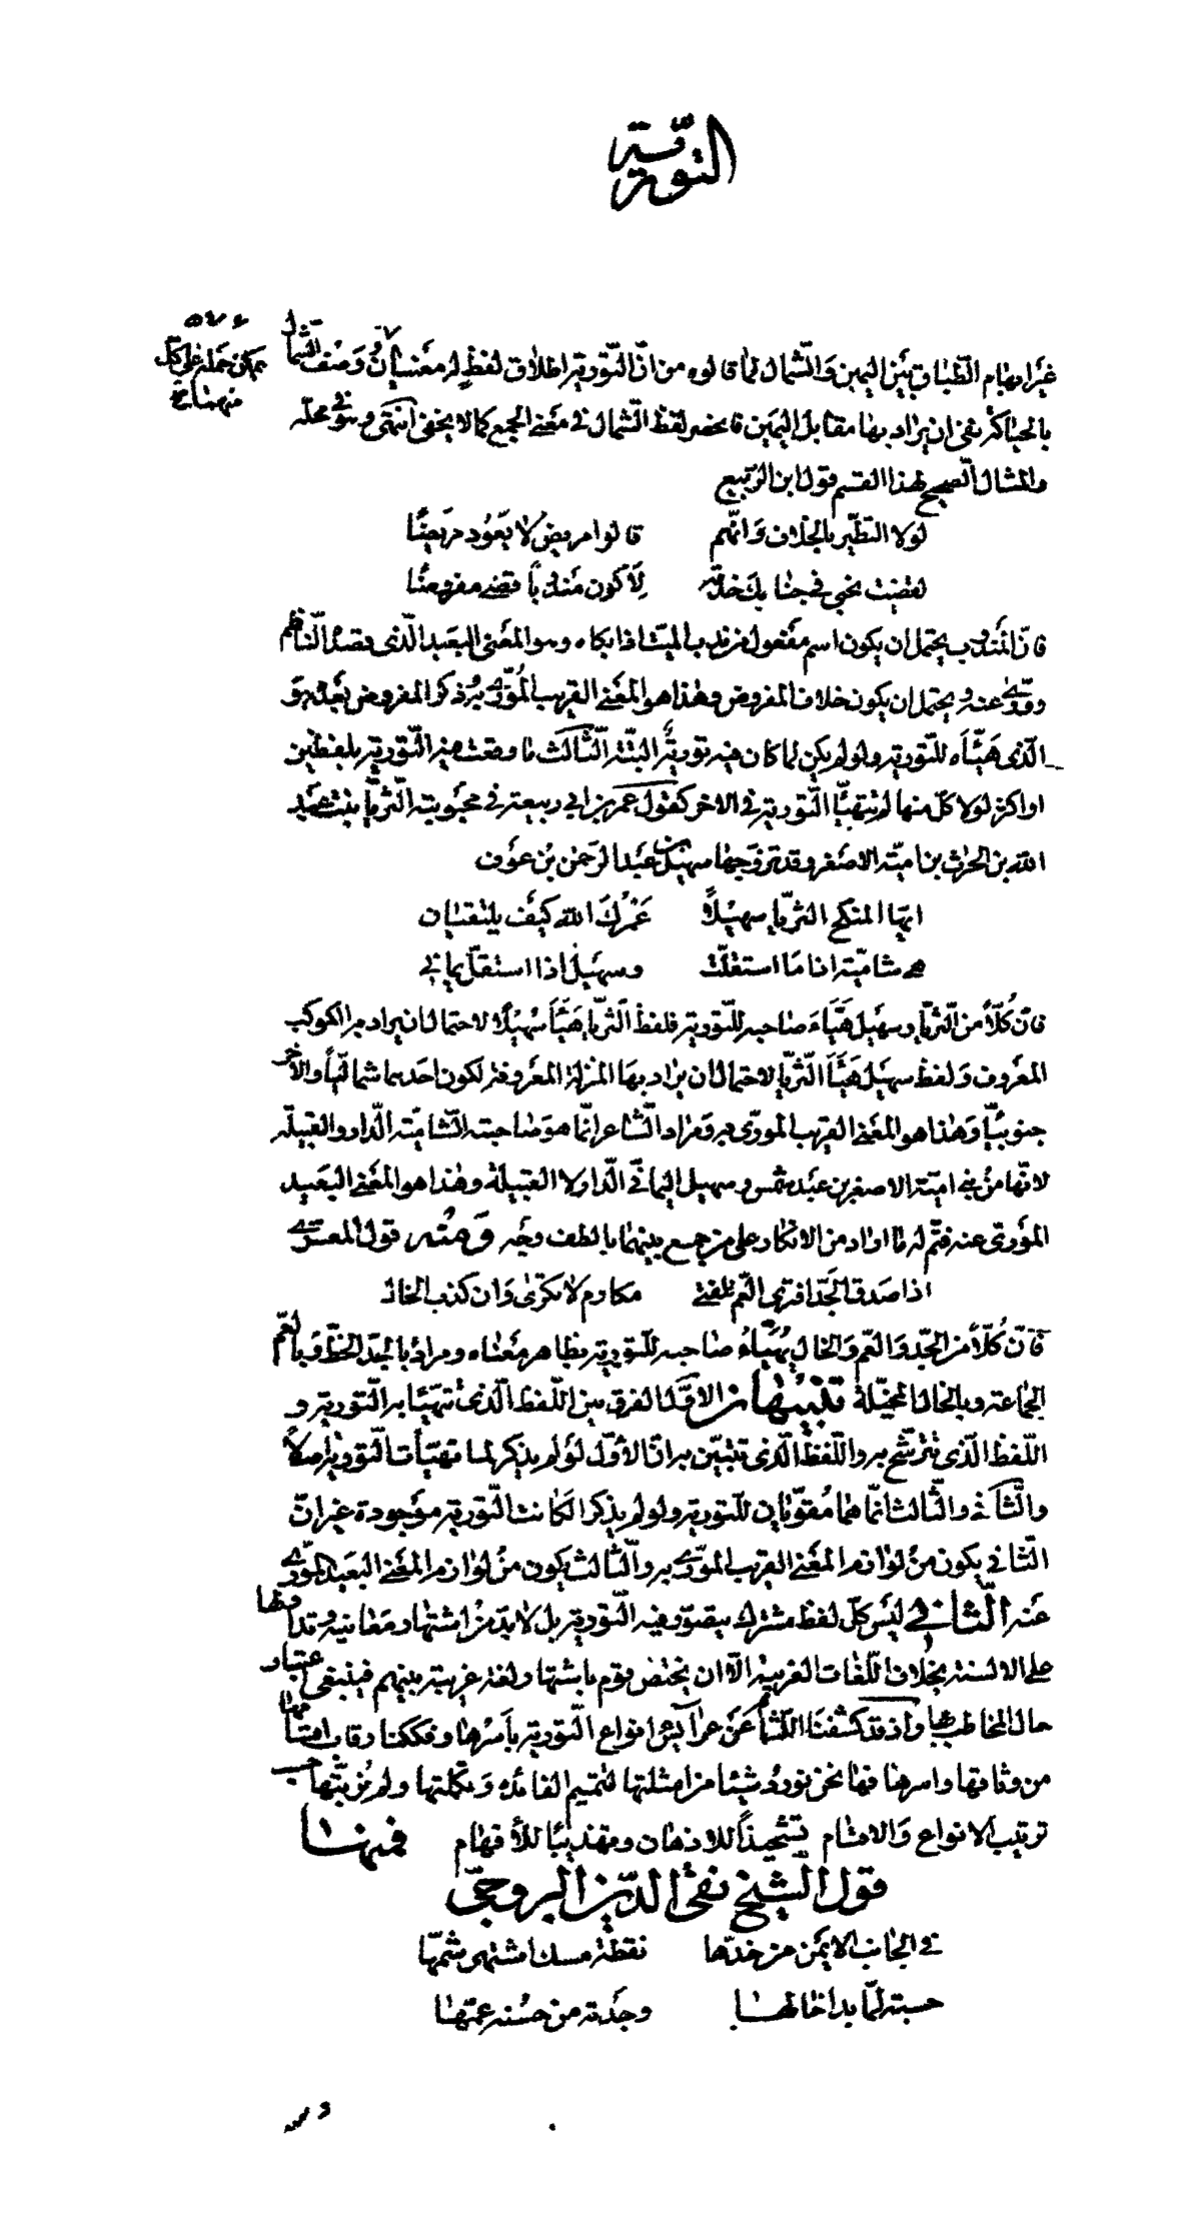 التورية
غير ايهام الطباق بين اليمين والشمال لما قالوه من ان التورية اطلاق لفظ له معنيان وصف الشمال
يمكن حمله على كل
منهما
بالحياكة ينفى ان يراد بها مقابل اليمين فانحصر لفظ الشمال فى معنى الجمع كما لا يخفى انتهى وهو فى محله
والمثال الصحيح لهذا القسم قول ابن الربيع
لولا التطيّر بالخلاف وانّهم قالوا مريض لا يَعود مريضًا
لقضيت نحبى فى جنابك خدمة لأكون مندوبًا قضى مفروضًا
فانّ المندوب يحتمل ان يكون اسم مفعول من ندب الميت اذا بكاه وهو المعنى البعيد الّذى قصده النّاظم
وورّى عنه ويحتمل ان يكون خلاف المفروض وهذا هو المعنى القريب المُورّى به وذكر المفروض بعده هو
الّذى هَيّأه للتّورية ولو لم يكن لما كان فيه تورية البتّة الثّالث ما وقعت فيه التّورية بلفظين
او اكثر لولا كلّ منهما لم تتهيّأ التّورية فى الاخر كقول عمر بن ابى ربيعة فى محبوبته الثّريّا بنت عبد
الله بن الحرث بن اميّة الاصغر وقد تزوّجها سهيل بن عبد الرّحمن بن عوف
ايّها المنكح الثريّا سهيلاً عَمْرُكَ الله كيف يلتقيان
هى شاميّة اذا مَا استقلّت وسهيل اذا استقلّ يمانى
فانّ كُلّاً من الثّريّا وسهيل هَيّأ صاحبه للتّورية فلفظ الثّريّا هَيّأ سُهيلًا لاحتمال ان يراد به الكوكب
المعروف ولفظ سهيل هيّأ الثّريّا لاحتمال ان يراد بها المنزلة المعروفة لكون احدهما شماليّاً والآخر
جنوبيّاً وهذا هو المعنى القريب المورّى به ومراد الشّاعر انّما هو صاحبته الشّاميّة الدّار والقبيلة
لانّها من بنى اميّة الاصغر بن عبد شمس وسهيل اليمانى الدّار لا القبيلة وهذا هو المعنى البعيد
المورّى عنه فتمّ له ما اراد من الانكار على من جمع بينهما بالطف وجه ومنه قول المعرّى
اذا صدق الجَدّ افترى العّم للفتى مكارم لا تكرى وان كذب الخال
فانّ كُلّاً من الجدّ والعّم والخال يُهيّأ صاحبه للتّورية بظاهر معناه ومراده بالجدّ الحظّ وبالعّم
الجماعة وبالخال المخيلة تنبيهان الاوّل الفرق بين اللّفظ الّذى تتهيّأ به التّورية و
اللّفظ الّذى تترشّح به واللّفظ الّذى تتبيّن به انّ الأوّل لو لم يذكر لما تهيّأت التّورية اصلاً
والثّانى والثّالث انّما هما مُقوّيان للتّورية ولو لم يذكرا لكانت التّورية موجودة غير انّ
الثّانى يكون من لوازم المعنى القريب المورّى به والثّالث يكون من لوازم المعنى البعيد المورّى
عنه الثّانى ليس كلّ لفظ مشترك يتصوّر فيه التّورية بل لا بدّ من اشتهار معانيه وتداولها
على الالسنة بخلاف اللّغات الغريبة الّا ان يختص قوم باشتهار لغة غريبة بينهم فينبغى اعتبار
حال المخاطب بها واذ قد كشفنا اللّثام عن عرايس انواع التّورية بأسرها وفككنا رقاب اقسامها
من وثاقها واسرها فها نحن نورد شيئا من امثلتها لتتميم الفائدة وتكملتها ولم نرتّبها حسب
ترتيب الانواع والاقسام تشحيذاً للاذهان وتهذيبًا للأفهام فمنها
قول الشيخ تقى الدّين السروجىّ
فى الجانب الايمن من خدّها نقطة مسك اشتهى شمّها
حسبته لمّا بدا خالها وجدته من حسنه عمّها